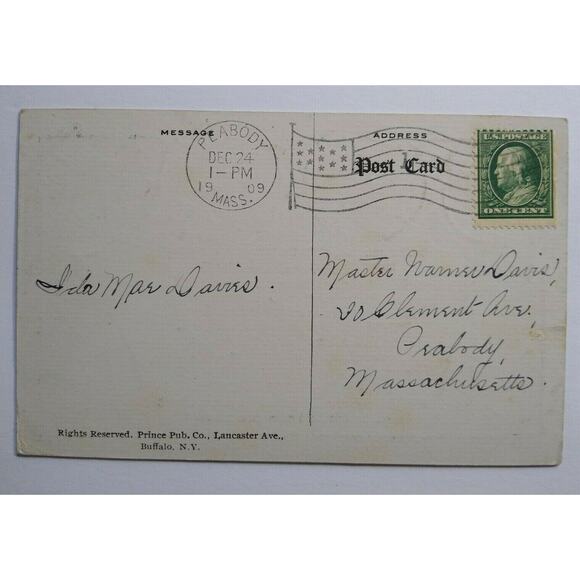 MESSAGE
PEABODY
DEC 24
1-PM
1909
MASS.
ADDRESS
Post Card
U.S. POSTAGE
ONE CENT
Ida Mae Davies.
Master Warner Davis,
20 Clement Ave.,
Peabody,
Massachusetts.
Rights Reserved. Prince Pub. Co., Lancaster Ave.,
Buffalo, N.Y.